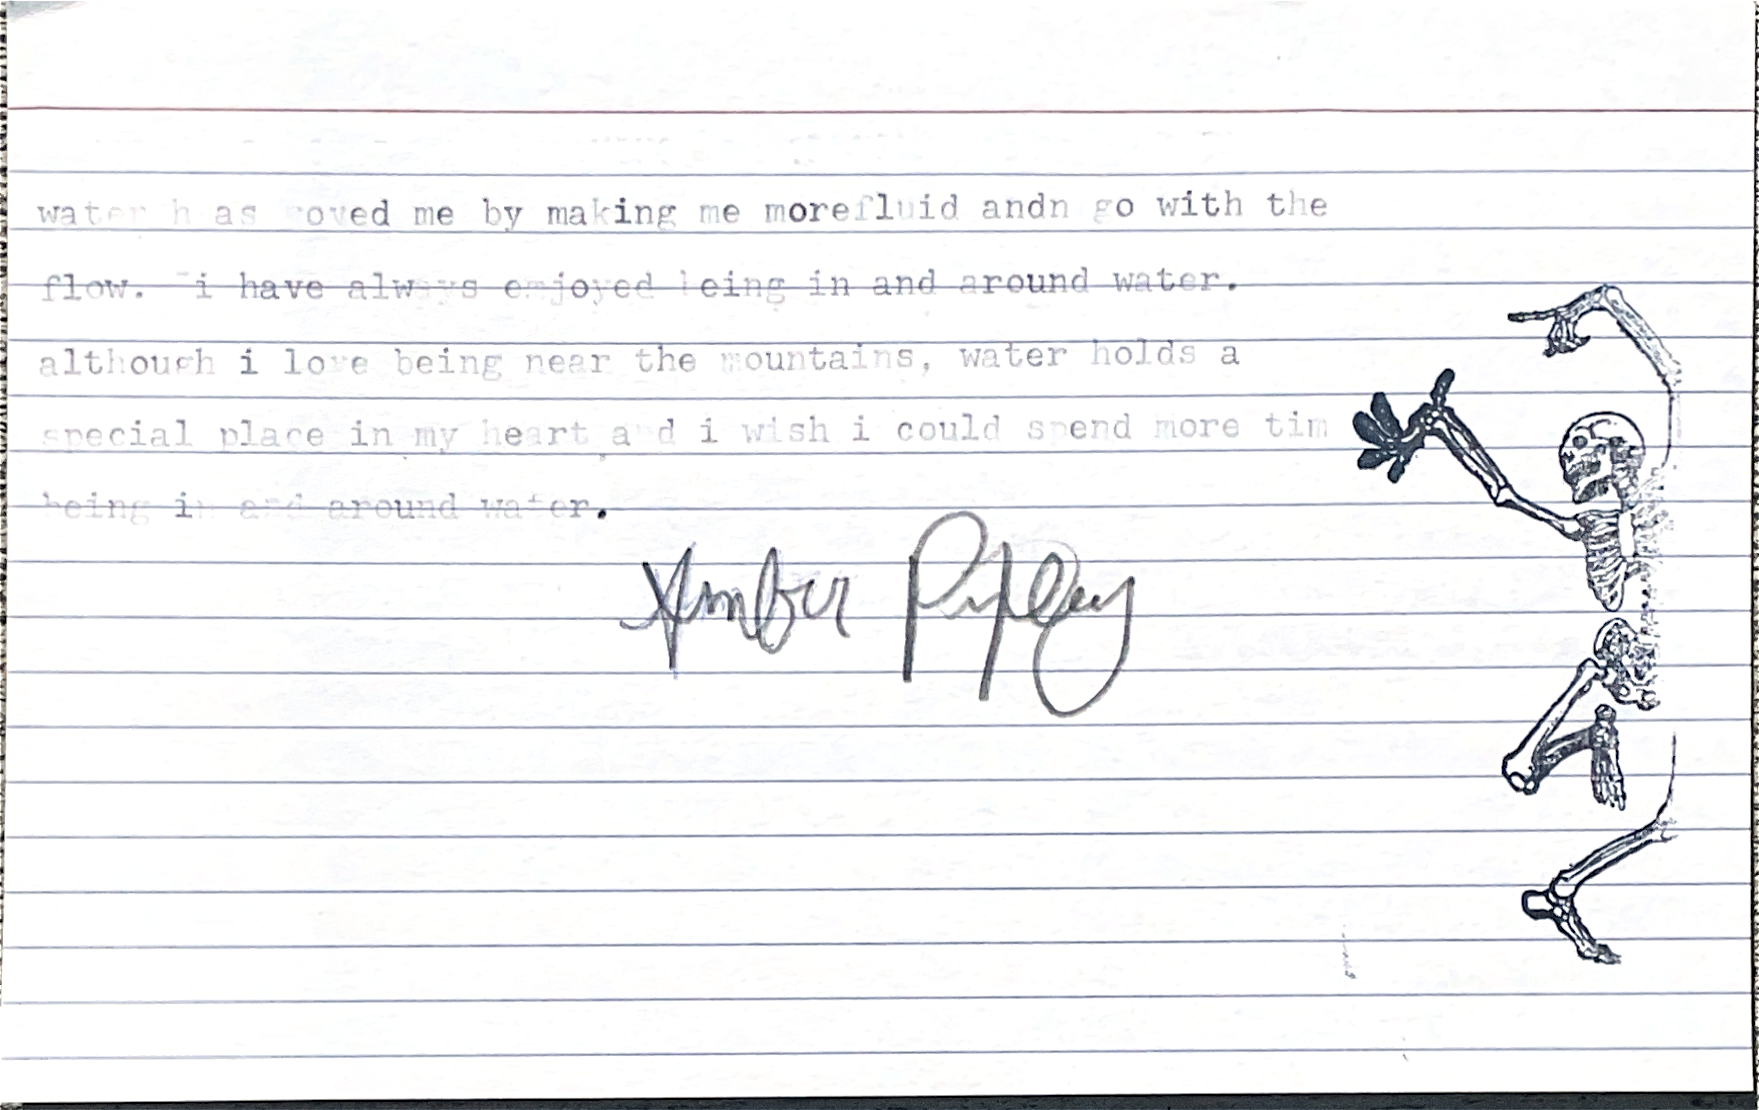 water h as moved me by making me morefluid andn go with the
flow. i have always enjoyed being in and around water.
although i love being near the mountains, water holds a
special place in my heart and i wish i could spend more tim
being in and around water.
Amber Pipley